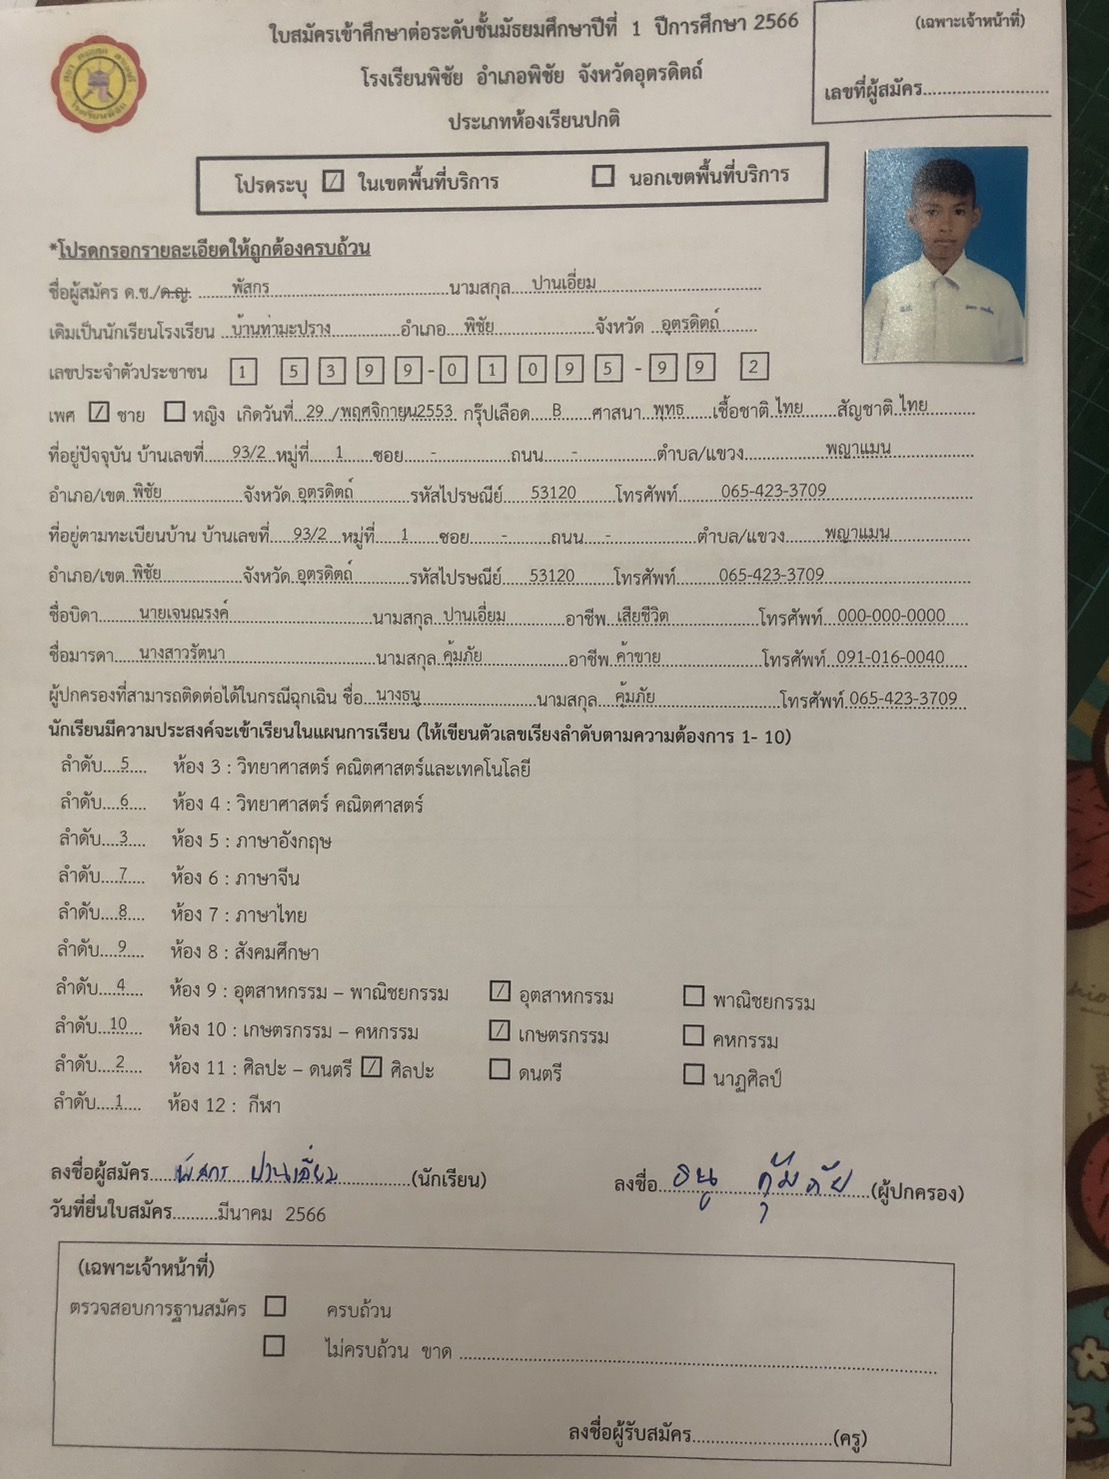 ใบสมัครเข้าศึกษาต่อระดับชั้นมัธยมศึกษาปีที่ 1 ปีการศึกษา 2566
(เฉพาะเจ้าหน้าที่)
โรงเรียนพิชัย อำเภอพิชัย จังหวัดอุตรดิตถ์
เลขที่ผู้สมัคร..........................
ประเภทห้องเรียนปกติ
โปรดระบุ ☑ ในเขตพื้นที่บริการ ☐ นอกเขตพื้นที่บริการ
*โปรดกรอกรายละเอียดให้ถูกต้องครบถ้วน
ชื่อผู้สมัคร ด.ช./ด.ญ. พัสกร นามสกุล ปานเอี่ยม
เดิมเป็นนักเรียนโรงเรียน บ้านท่ามะปราง อำเภอ พิชัย จังหวัด อุตรดิตถ์
เลขประจำตัวประชาชน 1 5 3 9 9 - 0 1 0 9 5 - 9 9 2
เพศ ☑ ชาย ☐ หญิง เกิดวันที่ 29 /พฤศจิกายน/2553 กรุ๊ปเลือด B ศาสนา พุทธ เชื้อชาติ ไทย สัญชาติ ไทย
ที่อยู่ปัจจุบัน บ้านเลขที่ 93/2 หมู่ที่ 1 ซอย - ถนน - ตำบล/แขวง พญาแมน
อำเภอ/เขต พิชัย จังหวัด อุตรดิตถ์ รหัสไปรษณีย์ 53120 โทรศัพท์ 065-423-3709
ที่อยู่ตามทะเบียนบ้าน บ้านเลขที่ 93/2 หมู่ที่ 1 ซอย - ถนน - ตำบล/แขวง พญาแมน
อำเภอ/เขต พิชัย จังหวัด อุตรดิตถ์ รหัสไปรษณีย์ 53120 โทรศัพท์ 065-423-3709
ชื่อบิดา นายเจนณรงค์ นามสกุล ปานเอี่ยม อาชีพ เสียชีวิต โทรศัพท์ 000-000-0000
ชื่อมารดา นางสาวรัตนา นามสกุล คุ้มภัย อาชีพ ค้าขาย โทรศัพท์ 091-016-0040
ผู้ปกครองที่สามารถติดต่อได้ในกรณีฉุกเฉิน ชื่อ นางธนู นามสกุล คุ้มภัย โทรศัพท์ 065-423-3709
นักเรียนมีความประสงค์จะเข้าเรียนในแผนการเรียน (ให้เขียนตัวเลขเรียงลำดับตามความต้องการ 1- 10)
ลำดับ 5 ห้อง 3 : วิทยาศาสตร์ คณิตศาสตร์และเทคโนโลยี
ลำดับ 6 ห้อง 4 : วิทยาศาสตร์ คณิตศาสตร์
ลำดับ 3 ห้อง 5 : ภาษาอังกฤษ
ลำดับ 7 ห้อง 6 : ภาษาจีน
ลำดับ 8 ห้อง 7 : ภาษาไทย
ลำดับ 9 ห้อง 8 : สังคมศึกษา
ลำดับ 4 ห้อง 9 : อุตสาหกรรม – พาณิชยกรรม ☑ อุตสาหกรรม ☐ พาณิชยกรรม
ลำดับ 10 ห้อง 10 : เกษตรกรรม – คหกรรม ☑ เกษตรกรรม ☐ คหกรรม
ลำดับ 2 ห้อง 11 : ศิลปะ – ดนตรี ☑ ศิลปะ ☐ ดนตรี ☐ นาฏศิลป์
ลำดับ 1 ห้อง 12 : กีฬา
ลงชื่อผู้สมัคร พัสกร ปานเอี่ยม (นักเรียน) ลงชื่อ ธนู คุ้มภัย (ผู้ปกครอง)
วันที่ยื่นใบสมัคร.........มีนาคม 2566
(เฉพาะเจ้าหน้าที่)
ตรวจสอบการฐานสมัคร ☐ ครบถ้วน
☐ ไม่ครบถ้วน ขาด ..........................
ลงชื่อผู้รับสมัคร..........................(ครู)